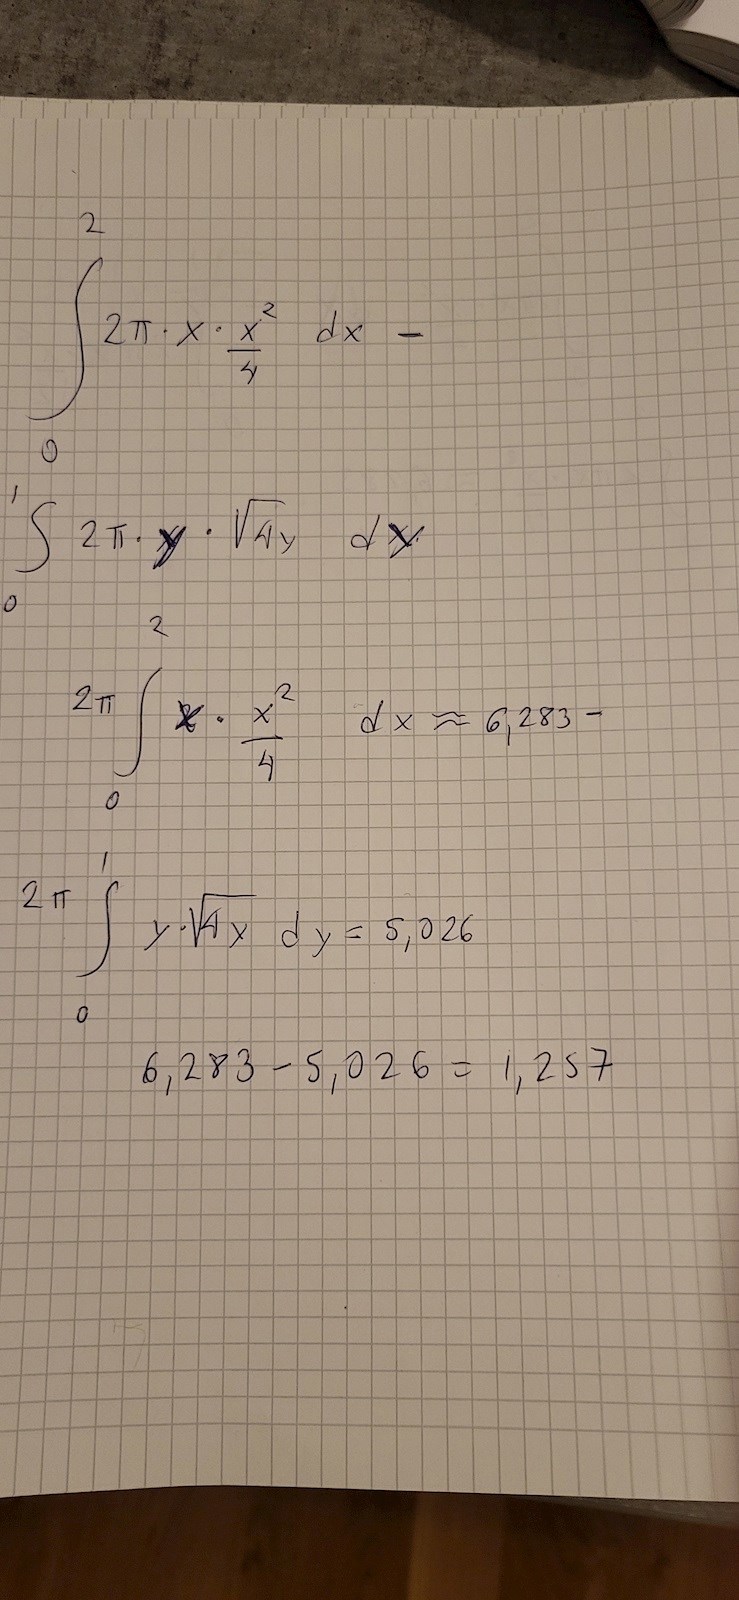 ∫₀² 2π · x · x²/4 dx –
∫₀¹ 2π · y · √4y dy
2π ∫₀² x · x²/4 dx ≈ 6,283 –
2π ∫₀¹ y · √4x dy = 5,026
6,283 – 5,026 = 1,257